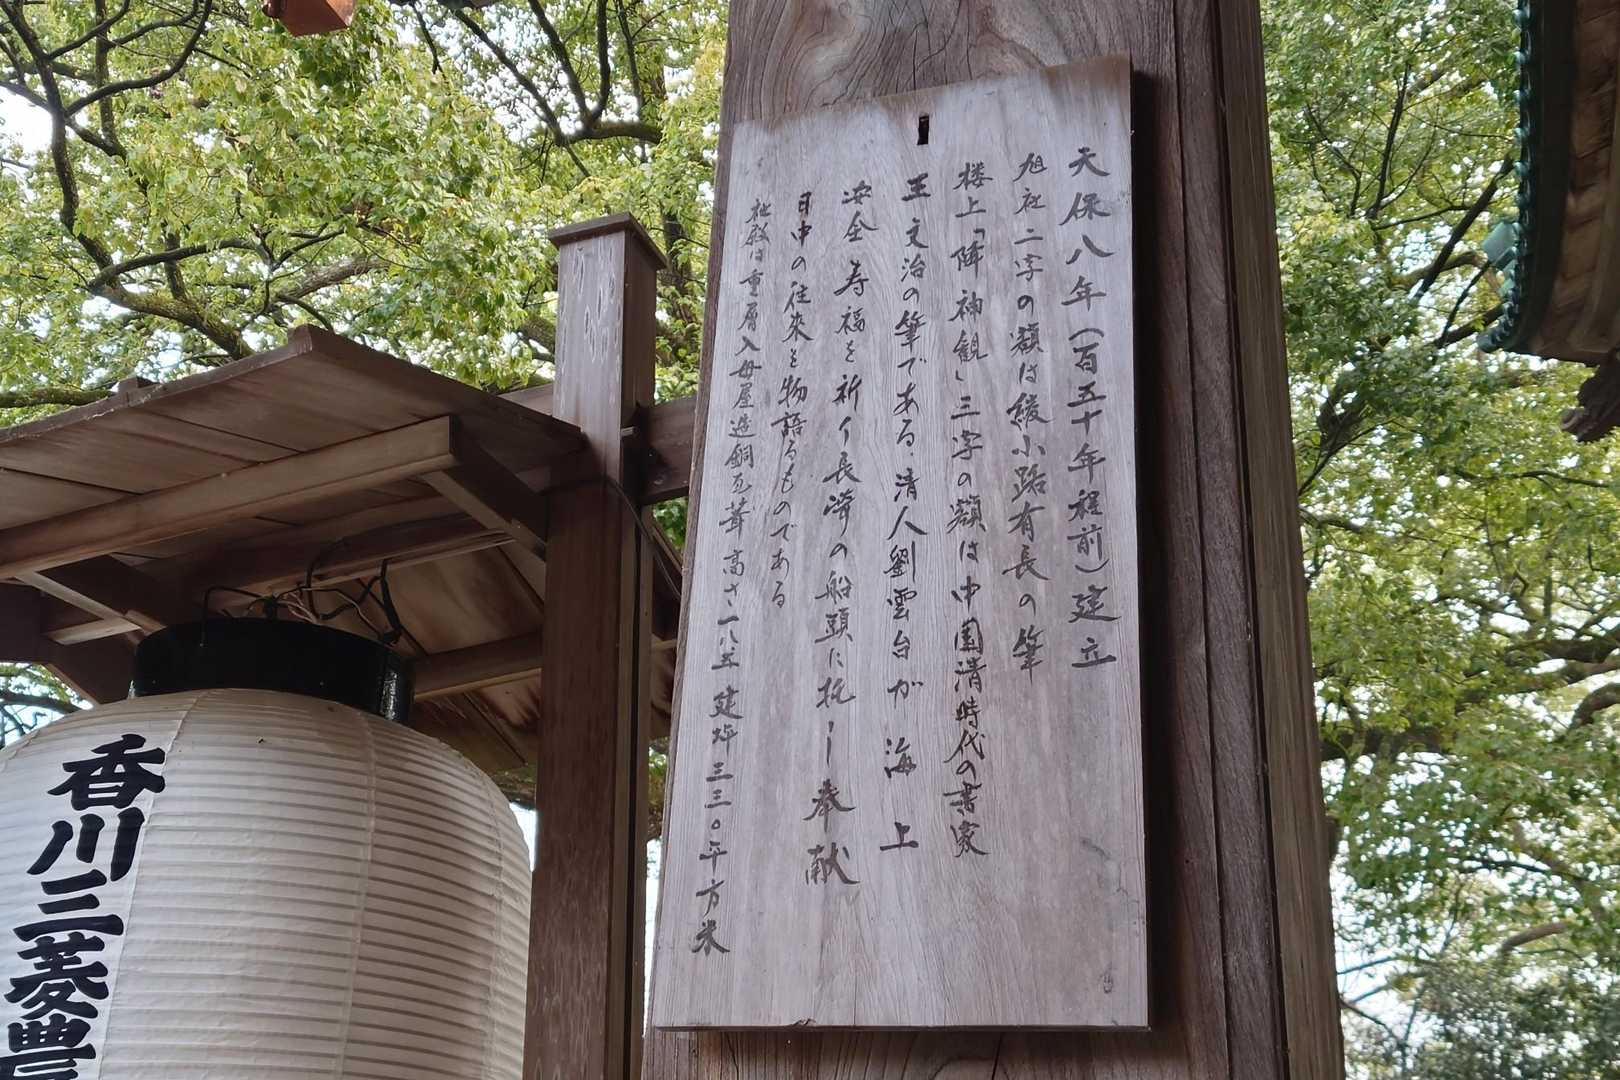 天保八年(百五十年程前)建立
旭社二字の額は綾小路有長の筆
楼上「降神観」三字の額は中国清時代の書家
王文治の筆である.清人劉雲台が海上
安全寿福を祈り長崎の船頭に托し奉献
日中の往来を物語るものである
社殿は重層入母屋造銅瓦葺高さ一八米建坪三三〇平方米
香川三菱農